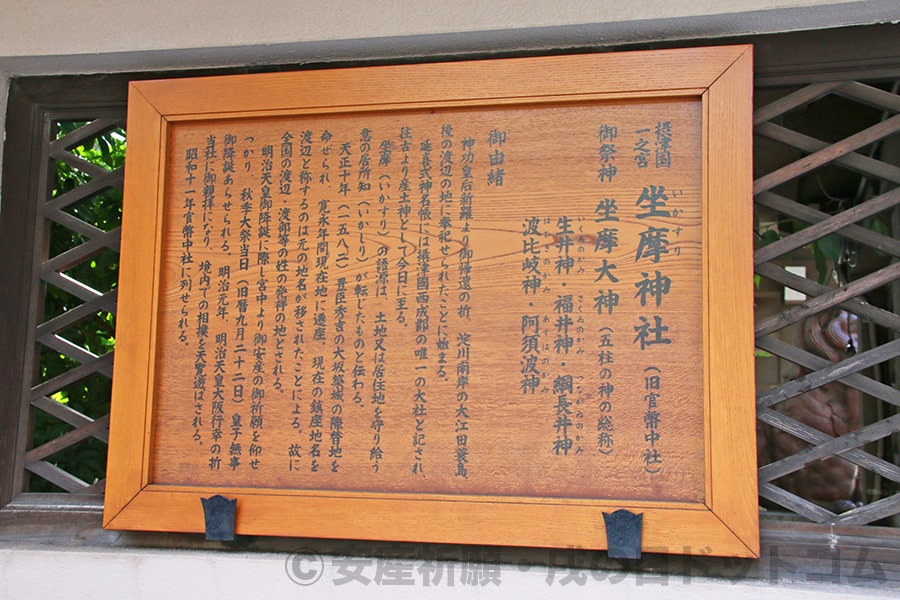 摂津国
一之宮
坐摩神社
いかすり
（旧官幣中社）
御祭神 坐摩大神（五柱の神の総称）
生井神・福井神・綱長井神
いくゐのかみ さくゐのかみ つながゐのかみ
波比岐神・阿須波神
はひきのかみ あすはのかみ
御由緒
神功皇后新羅より御帰還の折、淀川南岸の大江田蓑島、
後の渡辺の地に奉祀せられたことに始まる。
延喜式神名帳には摂津國西成郡の唯一の大社と記され、
往古より産土神として今日に至る。
坐摩（いかすり）の語源は、土地又は居住地を守り給う
意の居所知（いかしり）が転じたものと伝わる。
天正十年（一五八二）豊臣秀吉の大坂築城の際替地を
命ぜられ、寛永年間現在地に遷座、現在の鎮座地名を
渡辺と称するのは元の地名が移されたことによる。故に
全国の渡辺・渡部等の姓の発祥の地とされる。
明治天皇御降誕に際し宮中より御安産の御祈願を仰せ
つかり、秋季大祭当日（旧暦九月二十二日）皇子無事
御降誕あらせられる。明治元年、明治天皇大阪行幸の折
当社に御親拝になり、境内での相撲を天覧遊ばされる。
昭和十一年官幣中社に列せられる。
©安産祈願・戌の日ドットコム